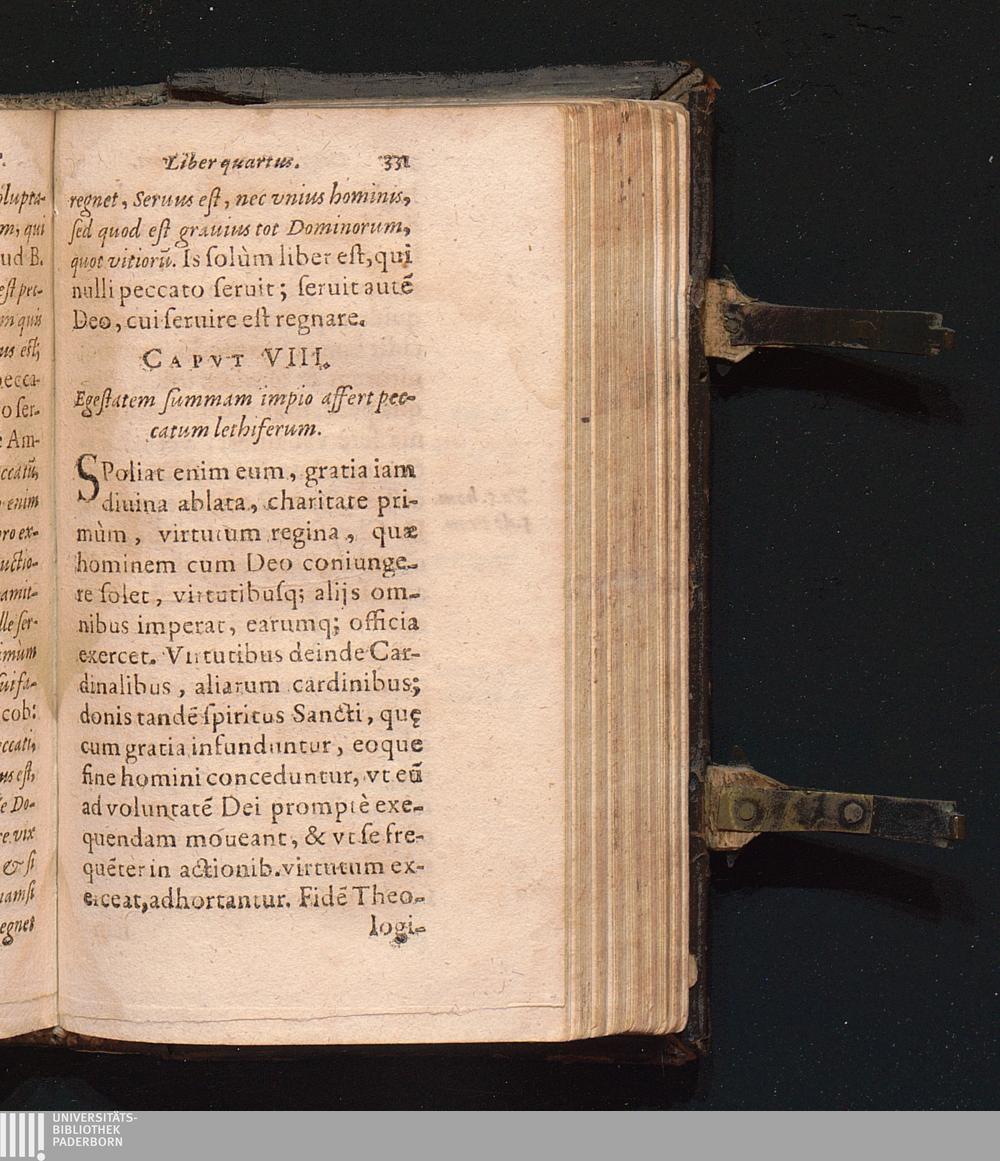 Liber quartus. 331
regnet, Seruus eſt, nec vnius hominis,
ſed quod eſt grauius tot Dominorum,
quot vitiorū. Is ſolùm liber eſt, qui
nulli peccato ſeruit; ſeruit autē
Deo, cui ſeruire eſt regnare.
CAPVT VIII.
Egeſtatem ſummam impio affert pec-
catum lethiferum.
SPoliat enim eum, gratia iam
diuina ablata, charitate pri-
mùm, virtutum regina, quæ
hominem cum Deo coniunge-
re ſolet, virtutibuſq; alijs om-
nibus imperat, earumq; officia
exercet. Virtutibus deinde Car-
dinalibus, aliarum cardinibus;
donis tandē ſpiritus Sancti, quę
cum gratia infunduntur, eoque
fine homini conceduntur, vt eū
ad voluntatē Dei promptè exe-
quendam moueant, & vt ſe fre-
quēter in actionib. virtutum ex-
erceat, adhortantur. Fidē Theo-
logi-
olupta-
m, qui
ud B.
eſt pec-
m quis
us eſt;
pecca-
o ſer-
e Am-
ccatū,
enim
pro ex-
uctio-
amit-
lle ſer-
imùm
cob:
ccati,
us eſt,
e Do-
re vix
& ſi
uamſi
egnet
UNIVERSITÄTS-
BIBLIOTHEK
PADERBORN